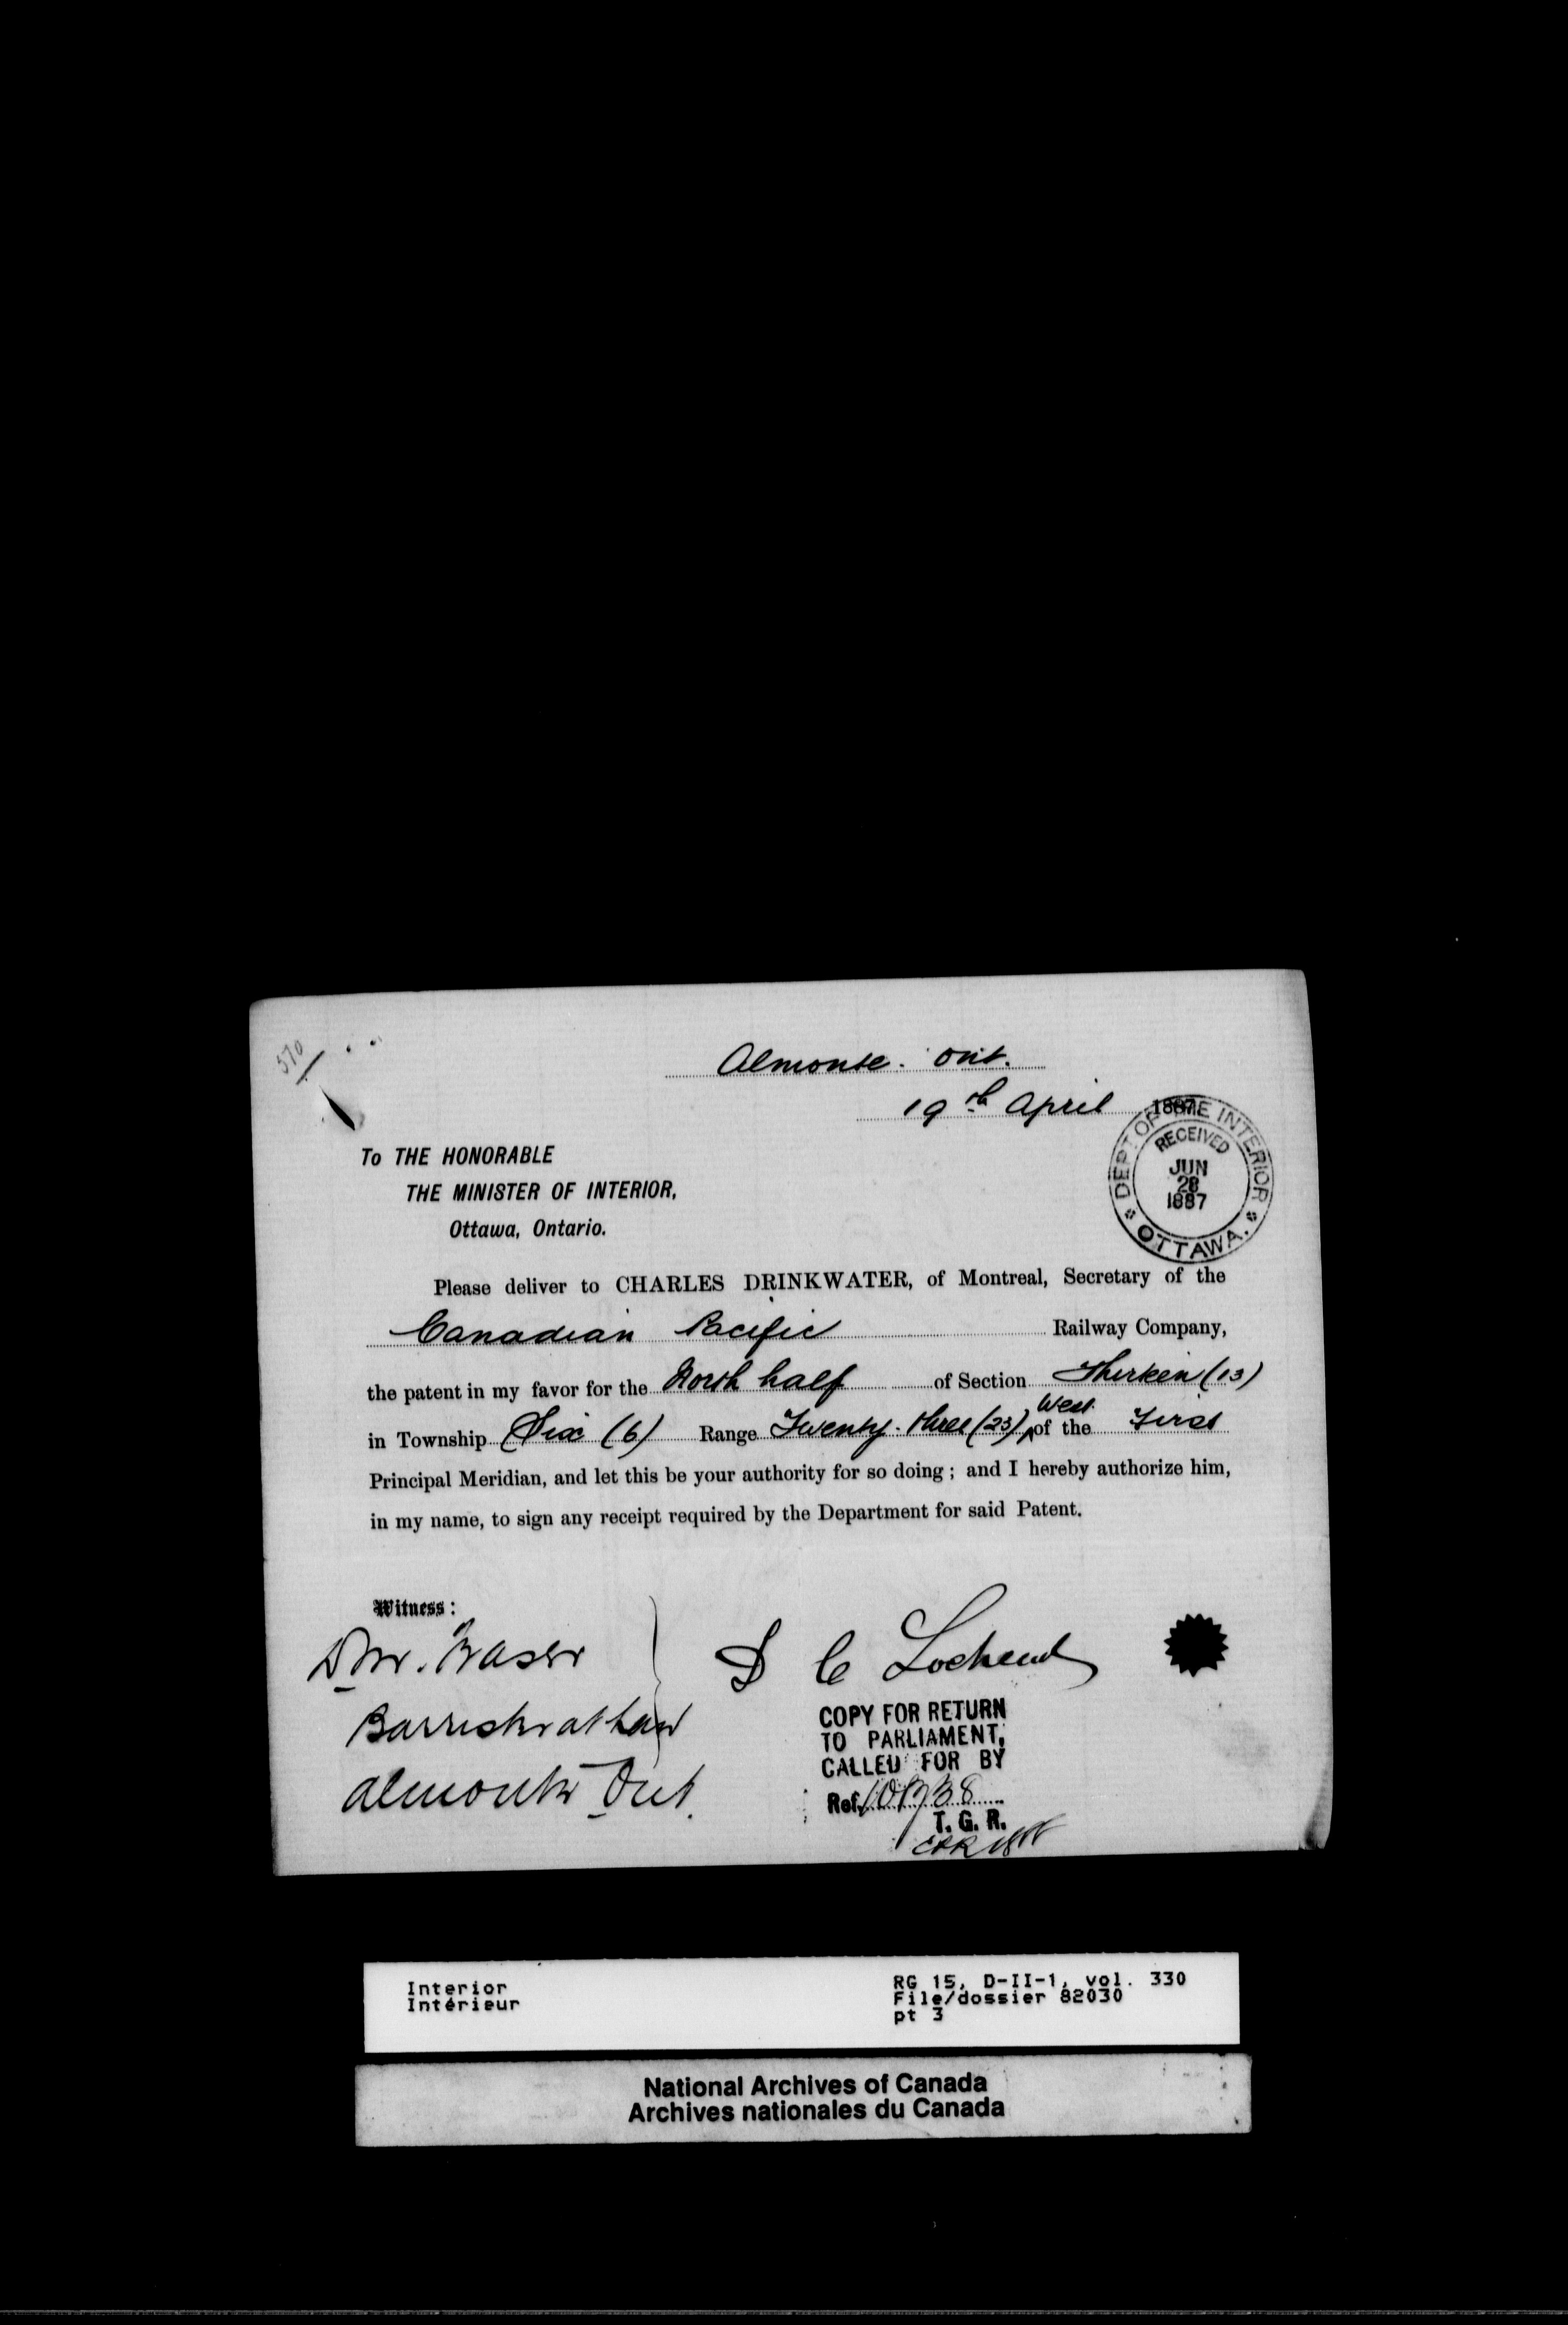 570
Almonte. Ont.
19th April 1887
DEPT. OF THE INTERIOR
RECEIVED
JUN
28
1887
OTTAWA.
To THE HONORABLE
THE MINISTER OF INTERIOR,
Ottawa, Ontario.
Please deliver to CHARLES DRINKWATER, of Montreal, Secretary of the
Canadian Pacific Railway Company,
the patent in my favor for the North half of Section Thirteen (13)
in Township Six (6) Range Twenty-three (23) West of the First
Principal Meridian, and let this be your authority for so doing; and I hereby authorize him,
in my name, to sign any receipt required by the Department for said Patent.
Witness:
Fraser
Barrister at Law
Almonte Ont.
C Lochead
COPY FOR RETURN
TO PARLIAMENT,
CALLED FOR BY
Ref.
T. G. R.
Interior
Intérieur
RG 15, D-II-1, vol. 330
File/dossier 82030
pt 3
National Archives of Canada
Archives nationales du Canada